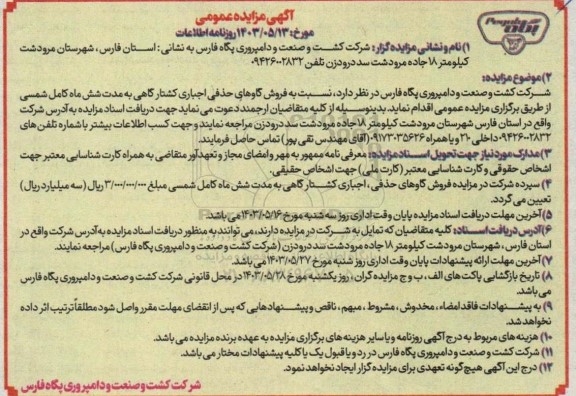 آگهی مزایده عمومی
مورخ: ۱۴۰۳/۰۵/۱۳ روزنامه اطلاعات
Pegah
پگاه
۱) نام و نشانی مزایده گزار: شرکت کشت و صنعت و دامپروری پگاه فارس به نشانی: استان فارس، شهرستان مرودشت
کیلومتر ۱۸ جاده مرودشت سد درودزن تلفن ۰۹۴۲۶۰۰۲۸۳۲
۲) موضوع مزایده:
شرکت کشت و صنعت و دامپروری پگاه فارس در نظر دارد، نسبت به فروش گاوهای حذفی اجباری کشتار گاهی به مدت شش ماه کامل شمسی
از طریق برگزاری مزایده عمومی اقدام نماید. بدینوسیله از کلیه متقاضیان ارجمند دعوت می نماید جهت دریافت اسناد مزایده به آدرس شرکت
واقع در استان فارس شهرستان مرودشت کیلومتر ۱۸ جاده مرودشت سد درودزن مراجعه نمایند و جهت کسب اطلاعات بیشتر با شماره تلفن های
۰۹۴۲۶۰۰۲۸۳۲ داخلی ۲۱۰ و یا همراه ۰۹۱۷۳۰۳۵۶۲۶ (آقای مهندس تقی پور) تماس حاصل فرمایند.
۳) مدارک مورد نیاز جهت تحویل اسناد مزایده: معرفی نامه ممهور به مهر و امضای مجاز و تعهدآور متقاضی به همراه کارت شناسایی معتبر جهت
اشخاص حقوقی و کارت شناسایی معتبر (کارت ملی) جهت اشخاص حقیقی.
۴) سپرده شرکت در مزایده فروش گاوهای حذفی، اجباری کشتار گاهی به مدت شش ماه کامل شمسی مبلغ ۳/۰۰۰/۰۰۰/۰۰۰ ریال (سه میلیارد ریال)
تعیین می گردد.
۵) آخرین مهلت دریافت اسناد مزایده پایان وقت اداری روز سه شنبه مورخ ۱۴۰۳/۰۵/۱۶ می باشد.
۶) آدرس دریافت اسناد: کلیه متقاضیان که تمایل به شرکت در مزایده دارند، می توانند به منظور دریافت اسناد مزایده به آدرس شرکت واقع در
استان فارس، شهرستان مرودشت کیلومتر ۱۸ جاده مرودشت سد درودزن (شرکت کشت و صنعت و دامپروری پگاه فارس) مراجعه نمایند.
۷) آخرین مهلت ارائه پیشنهادات پایان وقت اداری روز شنبه مورخ ۱۴۰۳/۰۵/۲۷ می باشد.
۸) تاریخ بازگشایی پاکت های الف، ب و ج مزایده گران، روز یکشنبه مورخ ۱۴۰۳/۰۵/۲۸ در محل قانونی شرکت کشت و صنعت و دامپروری پگاه فارس
می باشد.
۹) به پیشنهادات فاقد امضاء، مخدوش، مشروط، مبهم، ناقص و پیشنهادهایی که پس از انقضای مهلت مقرر واصل شود مطلقاً ترتیب اثر داده
نخواهد شد.
۱۰) هزینه های مربوط به درج آگهی روزنامه و یا سایر هزینه های برگزاری مزایده به عهده برنده مزایده می باشد.
۱۱) شرکت کشت و صنعت و دامپروری پگاه فارس در رد و یا قبول یک یا کلیه پیشنهادات مختار می باشد.
۱۲) درج این آگهی هیچ گونه تعهدی برای مزایده گزار ایجاد نخواهد نمود.
شرکت کشت و صنعت و دامپروری پگاه فارس